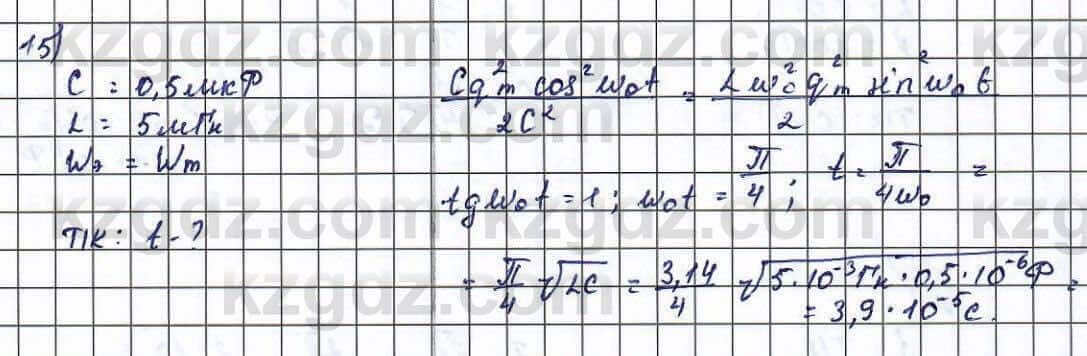 15)
C = 0,5 мкФ
L = 5 мГн
Wэ = Wm
Т/к: t - ?
Cq²m cos²ω₀t / 2C² = Lω₀²q²m sin²ω₀t / 2
tgω₀t = 1; ω₀t = π/4; t = π/4ω₀ =
= π/4 √LC = 3,14/4 √5·10⁻³Гн·0,5·10⁻⁶Ф =
= 3,9·10⁻⁵c.
kzgdz.com